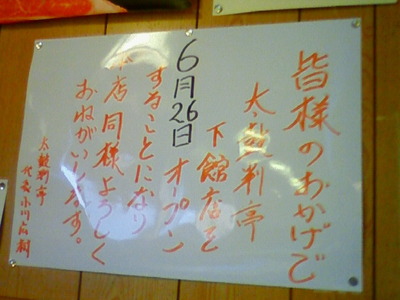 皆様のおかげで
太鼓判亭
下館店を
6月26日オープン
することになり
本店同様よろしく
おねがいします。
太鼓判亭
代表 小川